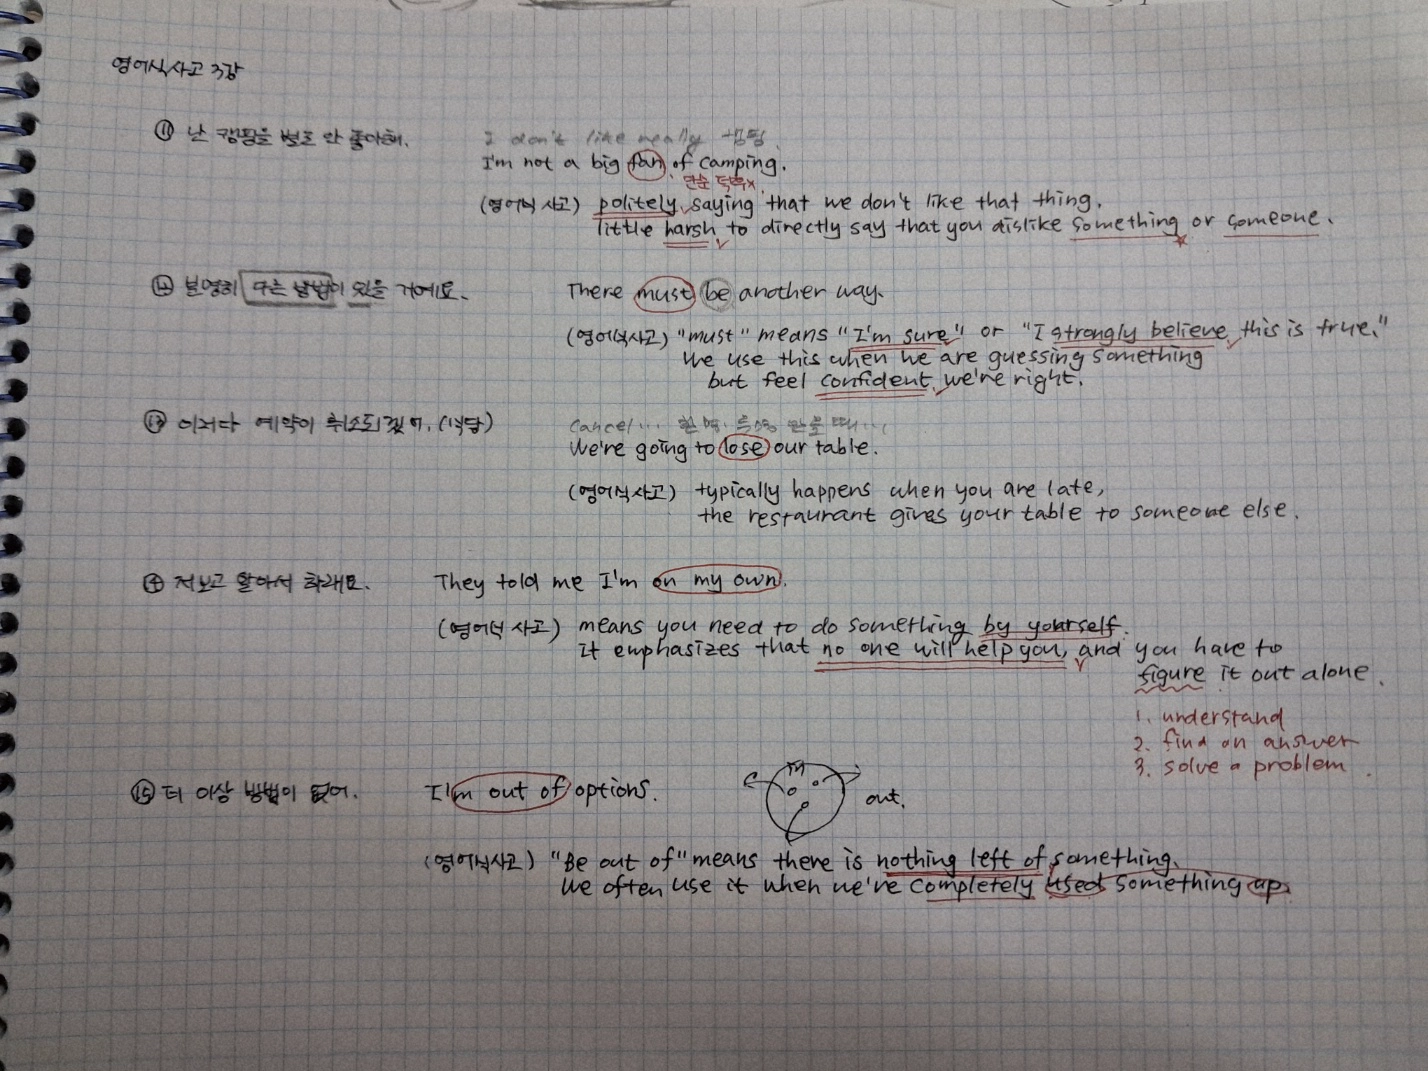 영어식사고 3강
⑪ 난 캠핑을 별로 안 좋아해.
I don't like really 캠핑
I'm not a big fan of camping.
단순
(영어식 사고) politely saying that we don't like that thing.
little harsh to directly say that you dislike something or someone.
⑫ 분명히 다른 방법이 있을 거예요.
There must be another way.
(영어식사고) "must" means "I'm sure" or "I strongly believe this is true."
We use this when we are guessing something
but feel confident we're right.
⑬ 이러다 예약이 취소되겠어. (식당)
Cancel...
We're going to lose our table.
(영어식사고) typically happens when you are late,
the restaurant gives your table to someone else.
⑭ 저보고 알아서 하래요.
They told me I'm on my own.
(영어식 사고) means you need to do something by yourself.
It emphasizes that no one will help you, and you have to
figure it out alone.
1. understand
2. find an answer
3. solve a problem.
⑮ 더 이상 방법이 없어.
I'm out of options.
out.
(영어식사고) "Be out of" means there is nothing left of something.
We often use it when we've completely used something up.